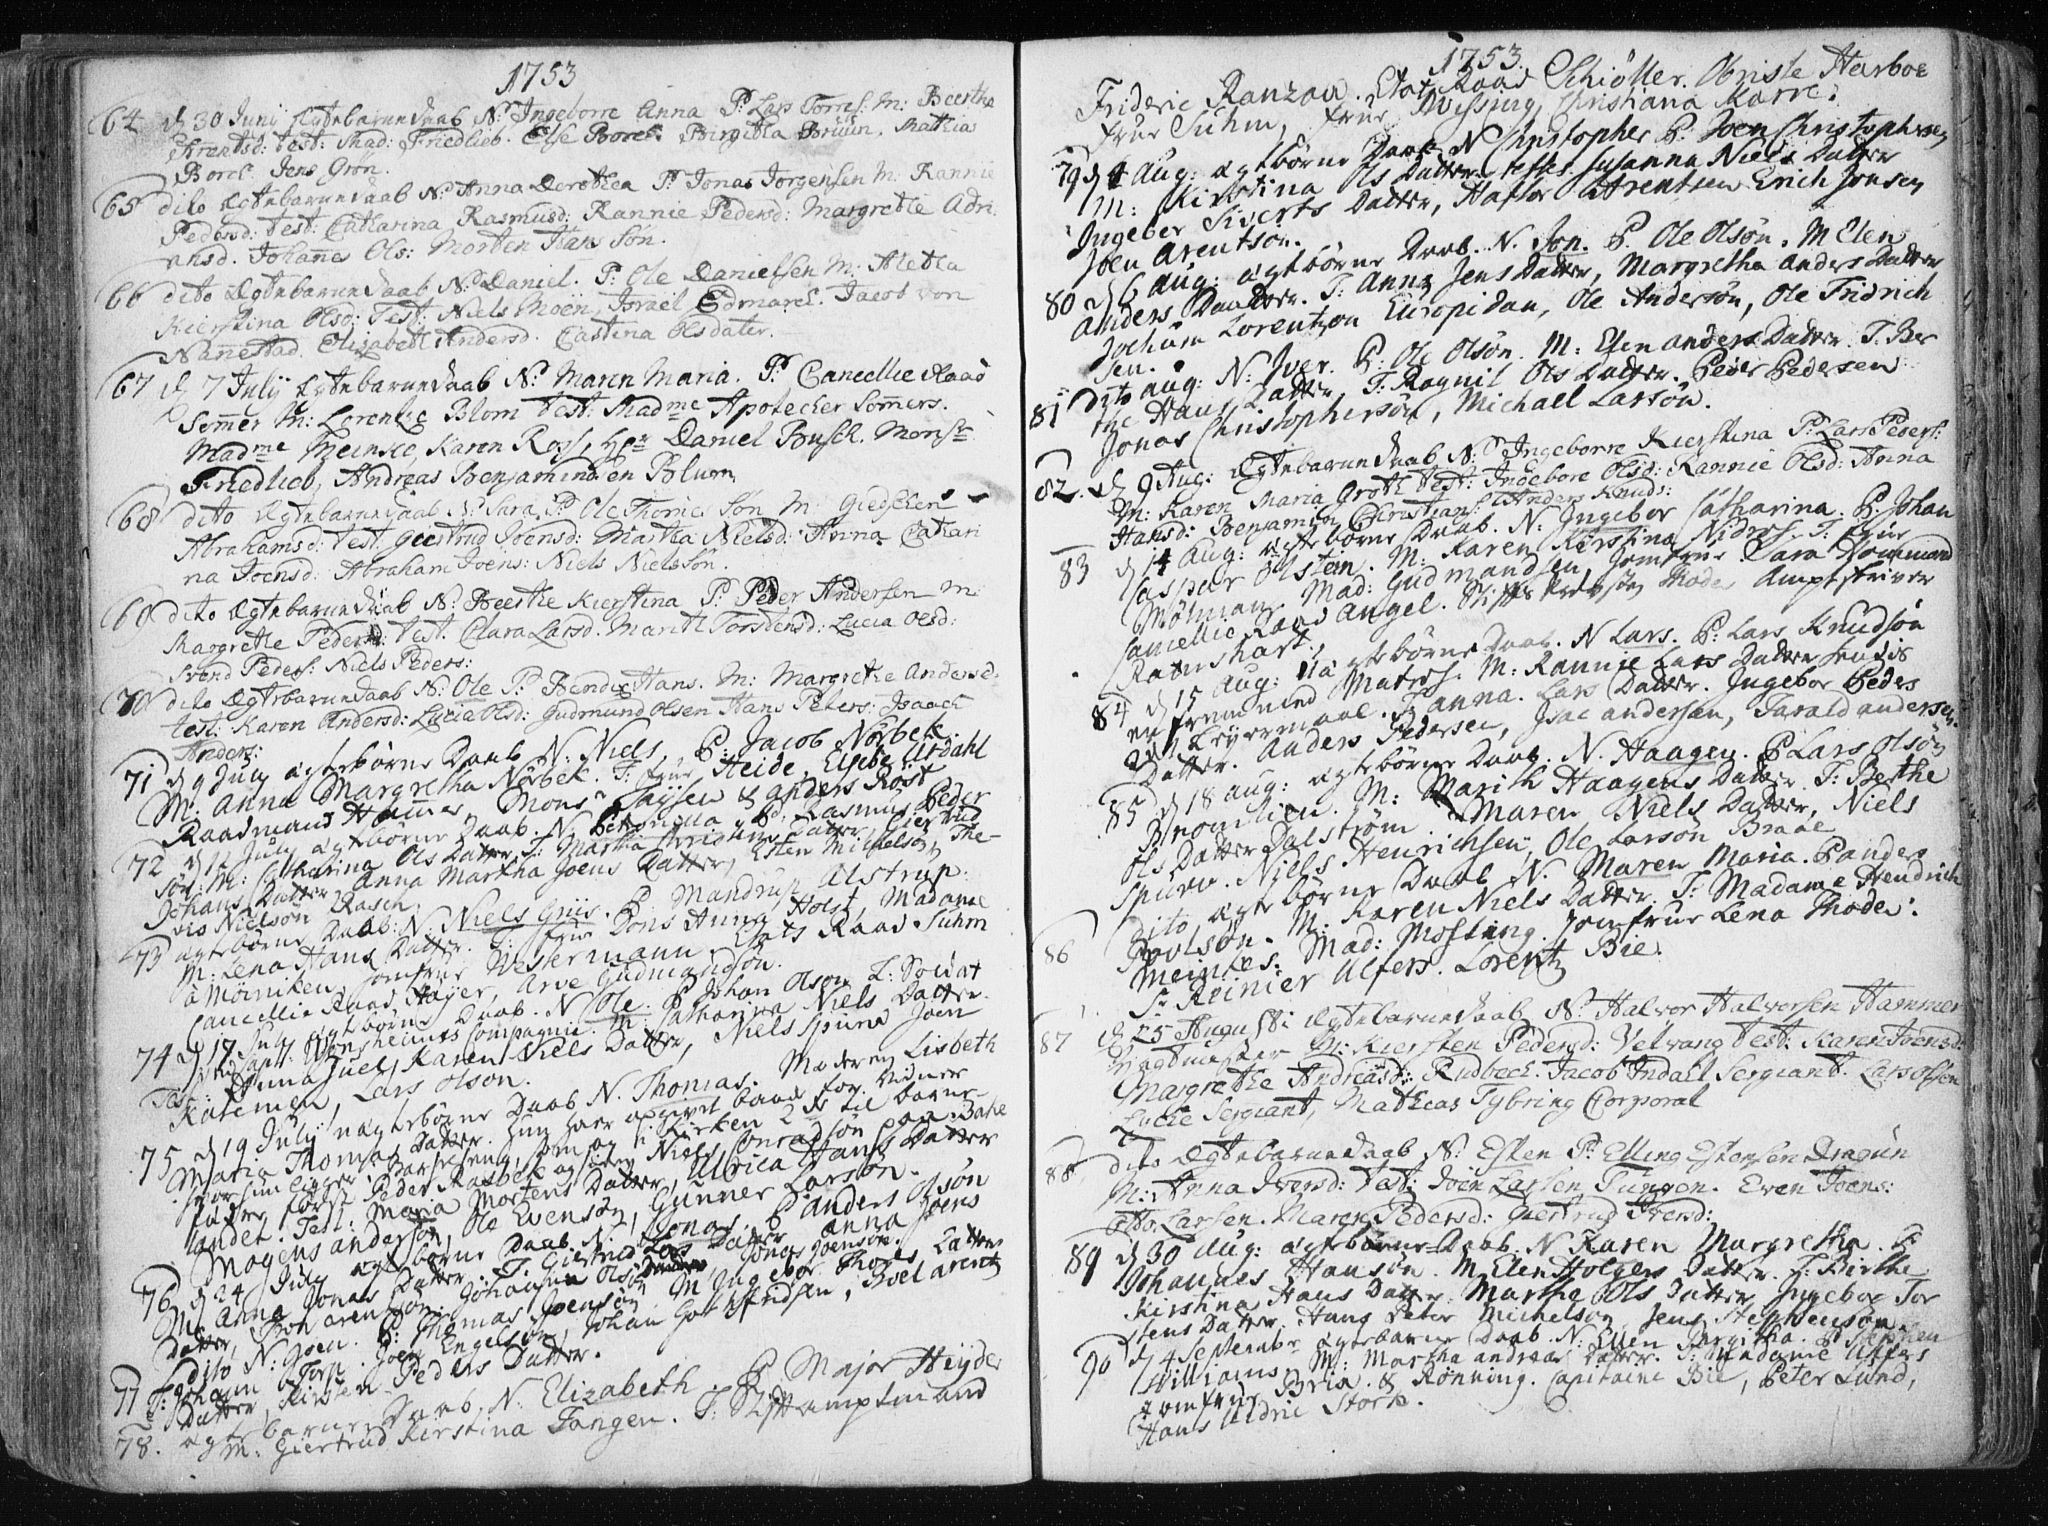 1753
64 d 30 Junij Egtebarne daab N: Ingeborre Anna P: Lars Torres: M: Beertha
Arentsd: test: Mad: Friedlieb. Else Borch. Birgitta Bruun. Mathias
Borch. Jens Grøn.
65 dito Egtebarne daab N: Anna Dorothea P: Jonas Jørgensen M: Rannie
Pedersd: test: Catharina Rasmusd: Rannie Pedersd: Margrethe Adri:
ansd. Johañes Ols: Morten Hans Søn.
66 dito Egtebarne daab N: Daniel. P: Ole Danielsen M: Aletta
Kierstina Olsd: Test: Niels Moen, Israel Edmarch. Jacob von
Nannestad. Elizabeth Andersd. Castina Olsdater.
67 d 7 July Egtebarne daab N: Maren Maria. P: Cancellie Raad
Semer M: Lorentze Blom test: Madme Apotecher Somers.
Madme Meincke, Karen Ross, Hr Daniel Busch. Monsr
Friedlieb, Andreas Benjaminsen Bluom
68 dito Egtebarne daab N: Sara P: Ole Thomes Søn M: Giedsken
Abrahamsd: test. Geertrud Joensd: Martha Nielsd: Anna Cathari
na Joensd: Abraham Joens: Niels Nielssøn.
69 dito Egtebarne daab N: Beerthe Kierstina P: Peder Andersen M:
Margrethe Pedersd: test. Clara Larsd. Marith Torstensd: Lucia Olsd:
Svend Peders: Niels Peders:
70 dito Egtebarne daab N: Ole P: Bendix Hans. M: Margrethe Andersd.
test: Karen Andersd: Lucia Olsd: Gudmund Olsen Hans Peters: Isaach
Anders:
71 d 9 July ægtebørne Daab N. Niels, P: Jacob Norbek.
M. Anna Margretha Norbek. T: frue Heide, Elsebe Urdahl
Raadmand Hammer, Monsr Taysen & anders Rost
72 d 12 July ægtebørne Daab. N. Petronella P. Rasmus Peder
søn: M: Catharina Ols Datter T: Martha Christians Datter, Giertrud
Johans Datter, Anna Martha Joens Datter, Esten Michelson The-
vis Nielson Rasch.
73 ægtebørne Daab: N. Niels Griis. P. Mandrup Alstrup.
M: Lena Hans Datter. T: frue Dons Anna Holst, Madame
à Møinichen, jomfrue Westermann. Etats Raad Suhm
Cancellie Raad Høyer, Arve Gudmandsøn.
74 d 17 July ægtebørne Daab. N Ole. P Johan Olson L: Soldat
Capit: Wensheims Compagnie. M: Catharina Niels Datter.
Test: Anna Juel, Karen Niels Datter, Niels Spure Joen
Katemen, Lars Olson.
75 d 19 July uægtebørne Daab N. Thomas. Moderen Lisbeth
Maria Thomas Datter. Hun haver opgivet baade for Vidner
hvor hun ligger i Barselseng, som og i Kirken 2de til barne
fader, først Peder Rasbek og siden Niels Conradson paa Bakl
andet. Test: Maria Mortens Datter, Ulrica Hans Datter
Mogens anderson, Ole Evensøn, Gunner Larsøn.
76 d 24 July ægtebørne Daab. N: Jonas. P anders Olsøn
M: Anna Jonas Datter. T: Giertrud Lars Datter anna Joens
Datter, Joen arentson. Johannes Olsøn, Jonas Joensøn.
77 dito N: Joen. P: Thomas Joensøn M Ingebor Thores Datter
T: Johan Torp. Joen Engelson, Johan Gotfridsen, Boel arentz
Datter, Kirsten Peders Datter.
78. ægtebarne Daab. N. Elizabeth. P Major Heyder
M. Giertrud Kirstina Tangen. T: Stiftamptmand
1753.
Frideric Ranzow. Etat Raad Schiøller. Obriste Harboe
frue Suhm, frue Wessing, Christiana Karre:
79 d 4 Aug: ægtebørne Daab N Christopher P: Joen Christophersen,
M: Kirstina Ols Datter testes. Susanna Niels Datter
Ingeber Siverts Datter, Hafter Arentsen Erich Jonsen
Joen Arentsøn.
80 d 6 aug: ægtebørne Daab. N. Jon. P. Ole Olsøn. M Elen
Anders Datter. T: Anna Jens Datter, Margretha anders Datter
Jochum Lorentzon Europidan, Ole Andersøn, Ole Fridrich
sen.
81 dito aug: N: Iver. P: Ole Olsøn. M: Elen anders Datter. T. Ber
the Hans Datter. T. Ragnil Ols Datter. Peder Pedersen
Jonas Christophersøn, Michael Larsøn.
82. d 9 Aug: Egtebarne daab N: Ingeborre Kierstina P: Lars Peders:
M: Karen Maria Groth test: Ingebore Olsd: Rannie Olsd: Anna
Hansd: Benjamin Christians: Anders Knuds:
83 d 14 aug: ægtebørne Daab. N. Ingebor Catharina. P. Johan
Caspar Olstein. M: Karen Kirstina Nidros. T: frue
Mølmans Mad: Gudmandsen, jomfrue Sara Hammond
Cancellie Raad Angel. Stifts Prousten Thode, Amptskriver
Ramshart.
84 d 15 aug: uægtebørne Daab. N Lars. P: Lars Knudsøn
en fremmed Matros. M: Rannie Lars Datter hendis
2den Leyermaal. T: anna. Lars Datter. Ingebor Peders
Datter. anders Pedersen, Isac andersen, Tarald andersen.
85 d 18 aug: ægtebørne Daab. N. Haagen. P Lars Olsøn
Bromlien. M: Marith Haagens Datter. T: Berthe
Ols Datter Dalstrøm. Maren Niels Datter, Niels
Spuren. Niels Henrichsen, Ole Larson Braae
86 dito ægtebørne Daab N. Maren Maria. P anders
Povlsøn. M: Karen Niels Datter. T: Madame Hendrich
Meinkes. Mad: Mossling. jomfrue Lena Thode.
Sr Reinier Alfers. Lorentz Bie.
87 d 25 Augusti Egtebarne daab N: Halvor Halvorsen Hammer
Vagtmester M: Kiersten Pedersd: Velvang test: Karen Joensd:
Margrethe Andreasd: Rudbech. Jacob Indahl Sergiant. Lars Olsen
Lyche Sergiant, Mathias Tybring Corporal
88 dito Egtebarne daab N: Esten P: Elling Estensen Dragun
M: Anna Iversd: Test: Joen Larsen Tungen. Even Joens:
Otto Larsen. Maren Pedersd: Giertrud Iversd:
89 d 30 Aug: ægtebørne Daab. N Karen Margretha. P.
Johannes Hanson. M. Elen Holgers Datter. T. Birthe
Kirstina Hans Datter. Marthe Ols Datter, Ingebor Tor
stens Datter. Hans Peter Michelson, Jens Stephensøn.
90 d 4 Septembr ægtebarne Daab. N: Ellen Birgitha. P Stephen
Williams. M: Martha andreas Datter. T: Madame Alfers
jomfrue Bria. & Rønning. Capitaine Bie, Peter Lund,
Hans Uldric Stork.